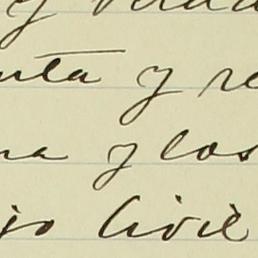 y
nta y re
na y los
jo Civil